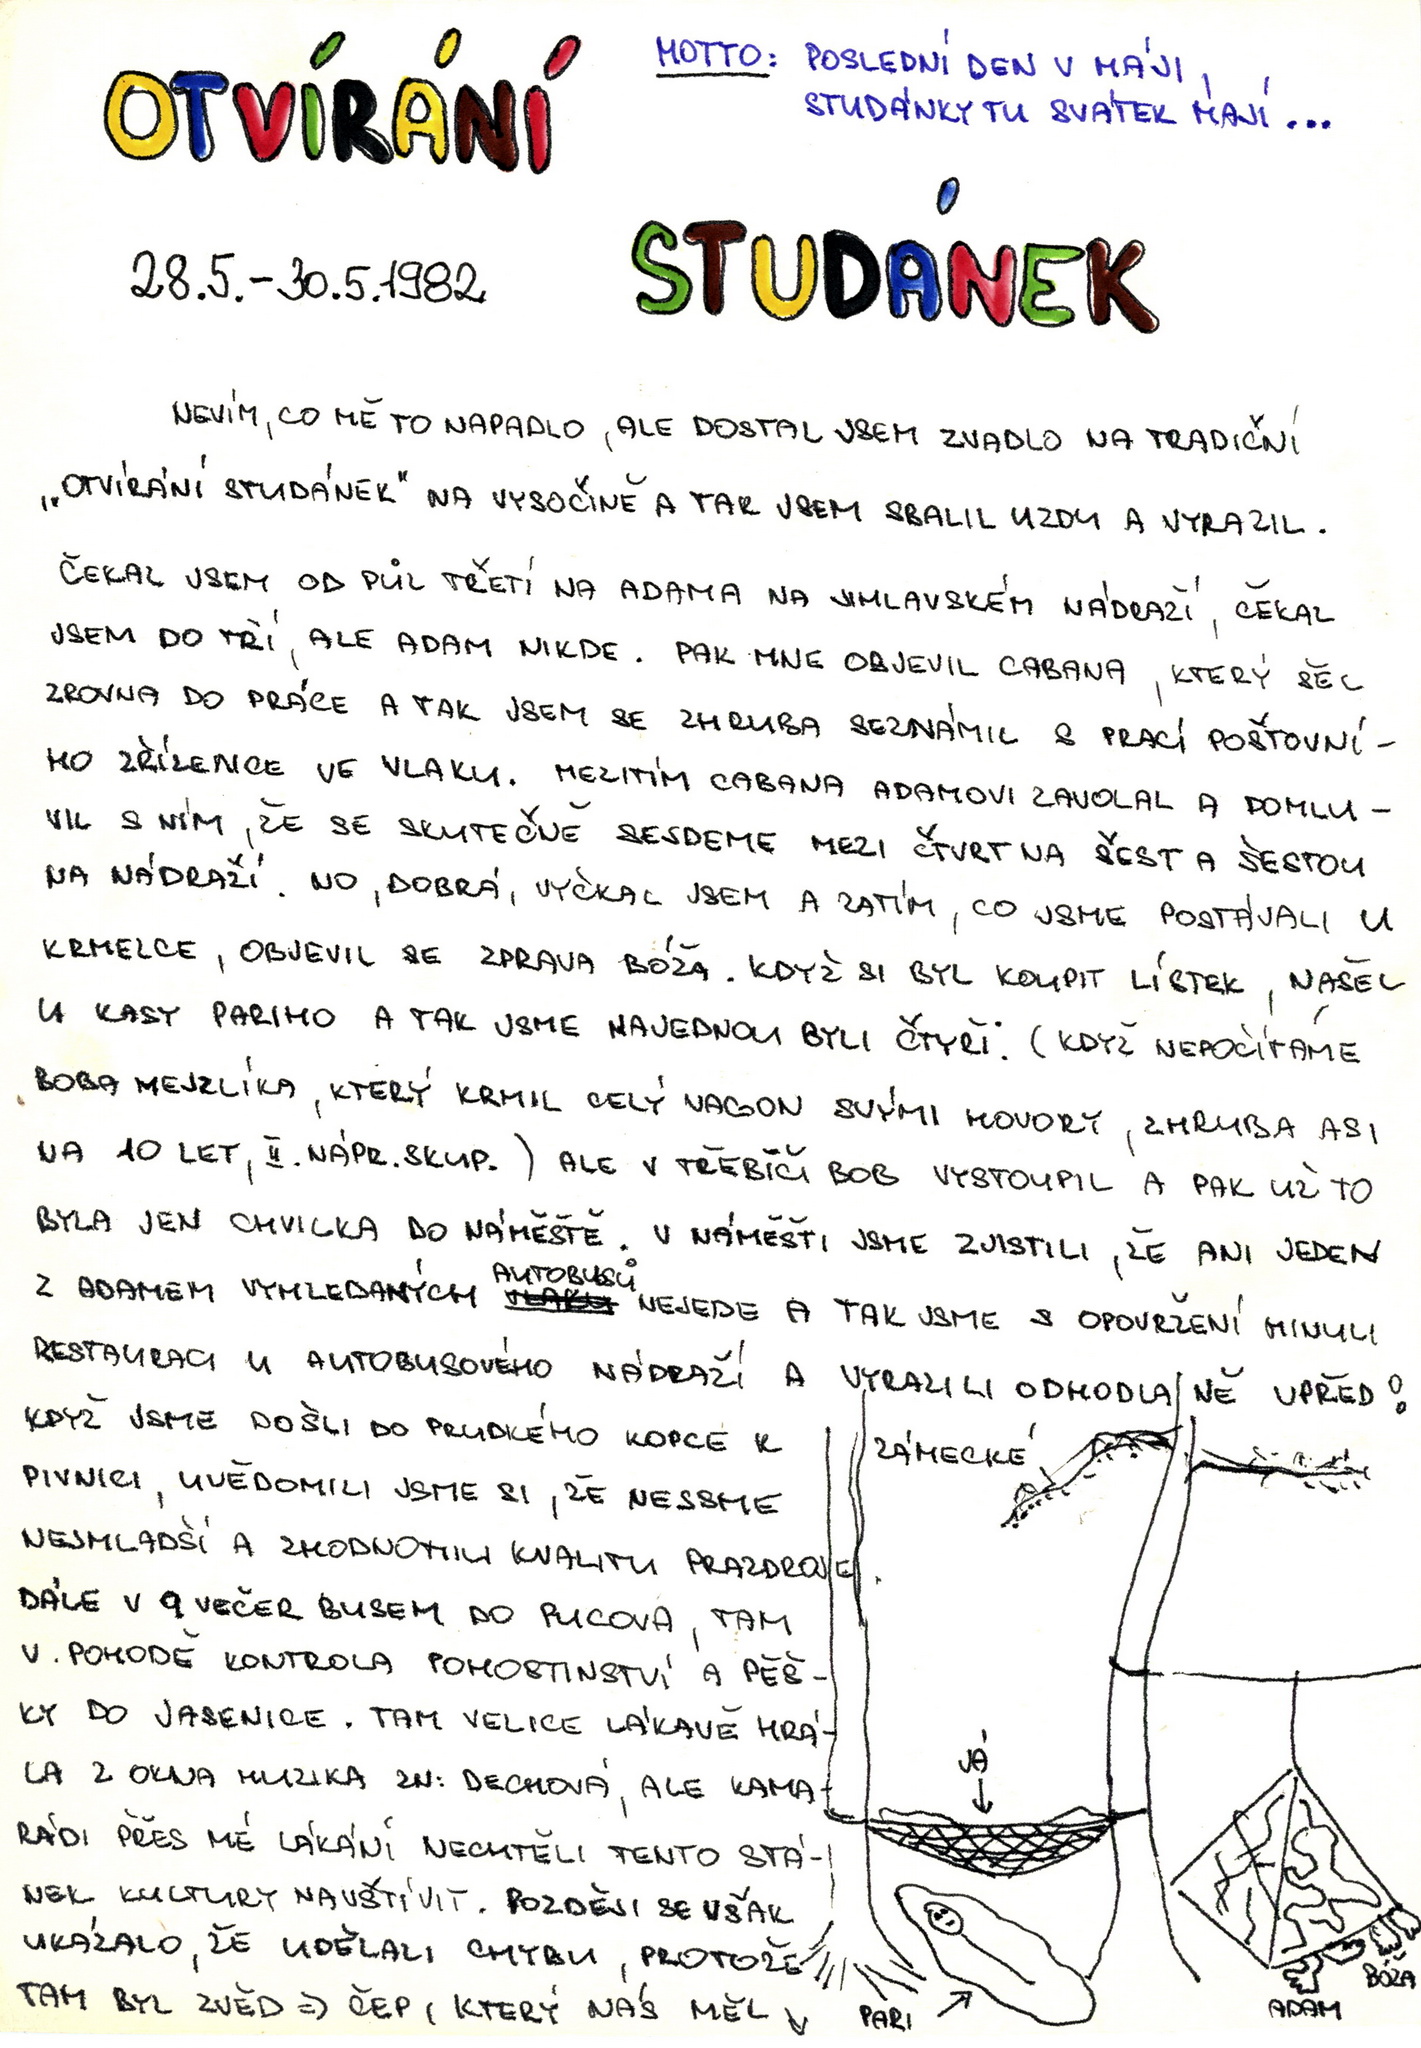 OTVÍRÁNÍ
MOTTO: POSLEDNÍ DEN V MÁJI,
STUDÁNKY TU SVÁTEK MAJÍ...
STUDÁNEK
28.5.-30.5.1982
NEVÍM, CO MĚ TO NAPADLO, ALE DOSTAL JSEM ZVADLO NA TRADIČNÍ
„OTVÍRÁNÍ STUDÁNEK" NA VYSOČINĚ A TAK JSEM SBALIL UZDU A VYRAZIL.
ČEKAL JSEM OD PŮL TŘETÍ NA ADAMA NA JIHLAVSKÉM NÁDRAŽÍ, ČEKAL
JSEM DO TŘÍ, ALE ADAM NIKDE. PAK MNE OBJEVIL CABANA, KTERÝ ŠEL
ZROVNA DO PRÁCE A TAK JSEM SE ZHRUBA SEZNÁMIL S PRACÍ POŠTOVNÍ-
HO ZŘÍZENCE VE VLAKU. MEZITÍM CABANA ADAMOVI ZAVOLAL A DOMLU-
VIL S NÍM, ŽE SE SKUTEČNĚ SEJDEME MEZI ČTVRT NA ŠEST A ŠESTOU
NA NÁDRAŽÍ. NO, DOBRÁ, VYČKAL JSEM A ZATÍM, CO JSME POSTÁVALI U
KRMELCE, OBJEVIL SE ZPRAVA BÓŽA. KDYŽ SI BYL KOUPIT LÍSTEK, NAŠEL
U KASY PARIHO A TAK JSME NAJEDNOU BYLI ČTYŘI. (KDYŽ NEPOČÍTÁME
BOBA MEJZLÍKA, KTERÝ KRMIL CELÝ VAGON SVÝMI HOVORY, ZHRUBA ASI
NA 10 LET, II. NÁPR. SKUP.) ALE V TŘEBÍČI BOB VYSTOUPIL A PAK UŽ TO
BYLA JEN CHVILKA DO NÁMĚŠTĚ. V NÁMĚŠTI JSME ZJISTILI, ŽE ANI JEDEN
Z ADAMEM VYHLEDANÝCH VLAKU AUTOBUSŮ NEJEDE A TAK JSME S OPOVRŽENÍ MINULI
RESTAURACI U AUTOBUSOVÉHO NÁDRAŽÍ A VYRAZILI ODHODLANĚ UPŘED!
KDYŽ JSME DOŠLI DO PRUDKÉHO KOPCE K ZÁMECKÉ
PIVNICI, UVĚDOMILI JSME SI, ŽE NEJSME
NEJMLADŠÍ A ZHODNOTILI KVALITU PRAZDROJE.
DÁLE V 9 VEČER BUSEM DO PUCOVA, TAM
V. POHODĚ KONTROLA POHOSTINSTVÍ A PĚŠ-
KY DO JASENICE. TAM VELICE LÁKAVĚ HRÁ-
LA Z OKNA MUZIKA ZN: DECHOVÁ, ALE KAMA-
RÁDI PŘES MÉ LÁKÁNÍ NECHTĚLI TENTO STÁ-
NEK KULTURY NAVŠTÍVIT. POZDĚJI SE VŠAK
UKÁZALO, ŽE UDĚLALI CHYBU, PROTOŽE
TAM BYL ZVĚD => ČEP, KTERÝ NÁS MĚL ↓
JÁ
PARI
ADAM
BÓŽA